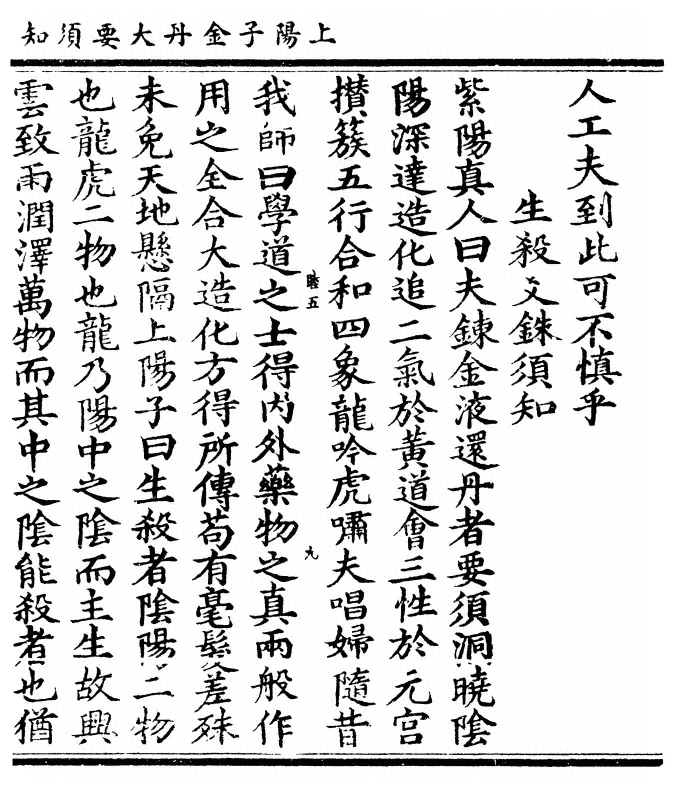 上陽子金丹大要須知
人工夫到此可不慎乎
生殺爻銖須知
紫陽真人曰夫鍊金液還丹者要須洞曉陰
陽深達造化追二氣於黃道會三性於元宮
攢簇五行合和四象龍吟虎嘯夫唱婦隨昔
睦五 九
我師曰學道之士得內外藥物之真兩般作
用之全合大造化方得所傳苟有毫髮差殊
未免天地懸隔上陽子曰生殺者陰陽二物
也龍虎二物也龍乃陽中之陰而主生故興
雲致雨潤澤萬物而其中之陰能殺者也猶